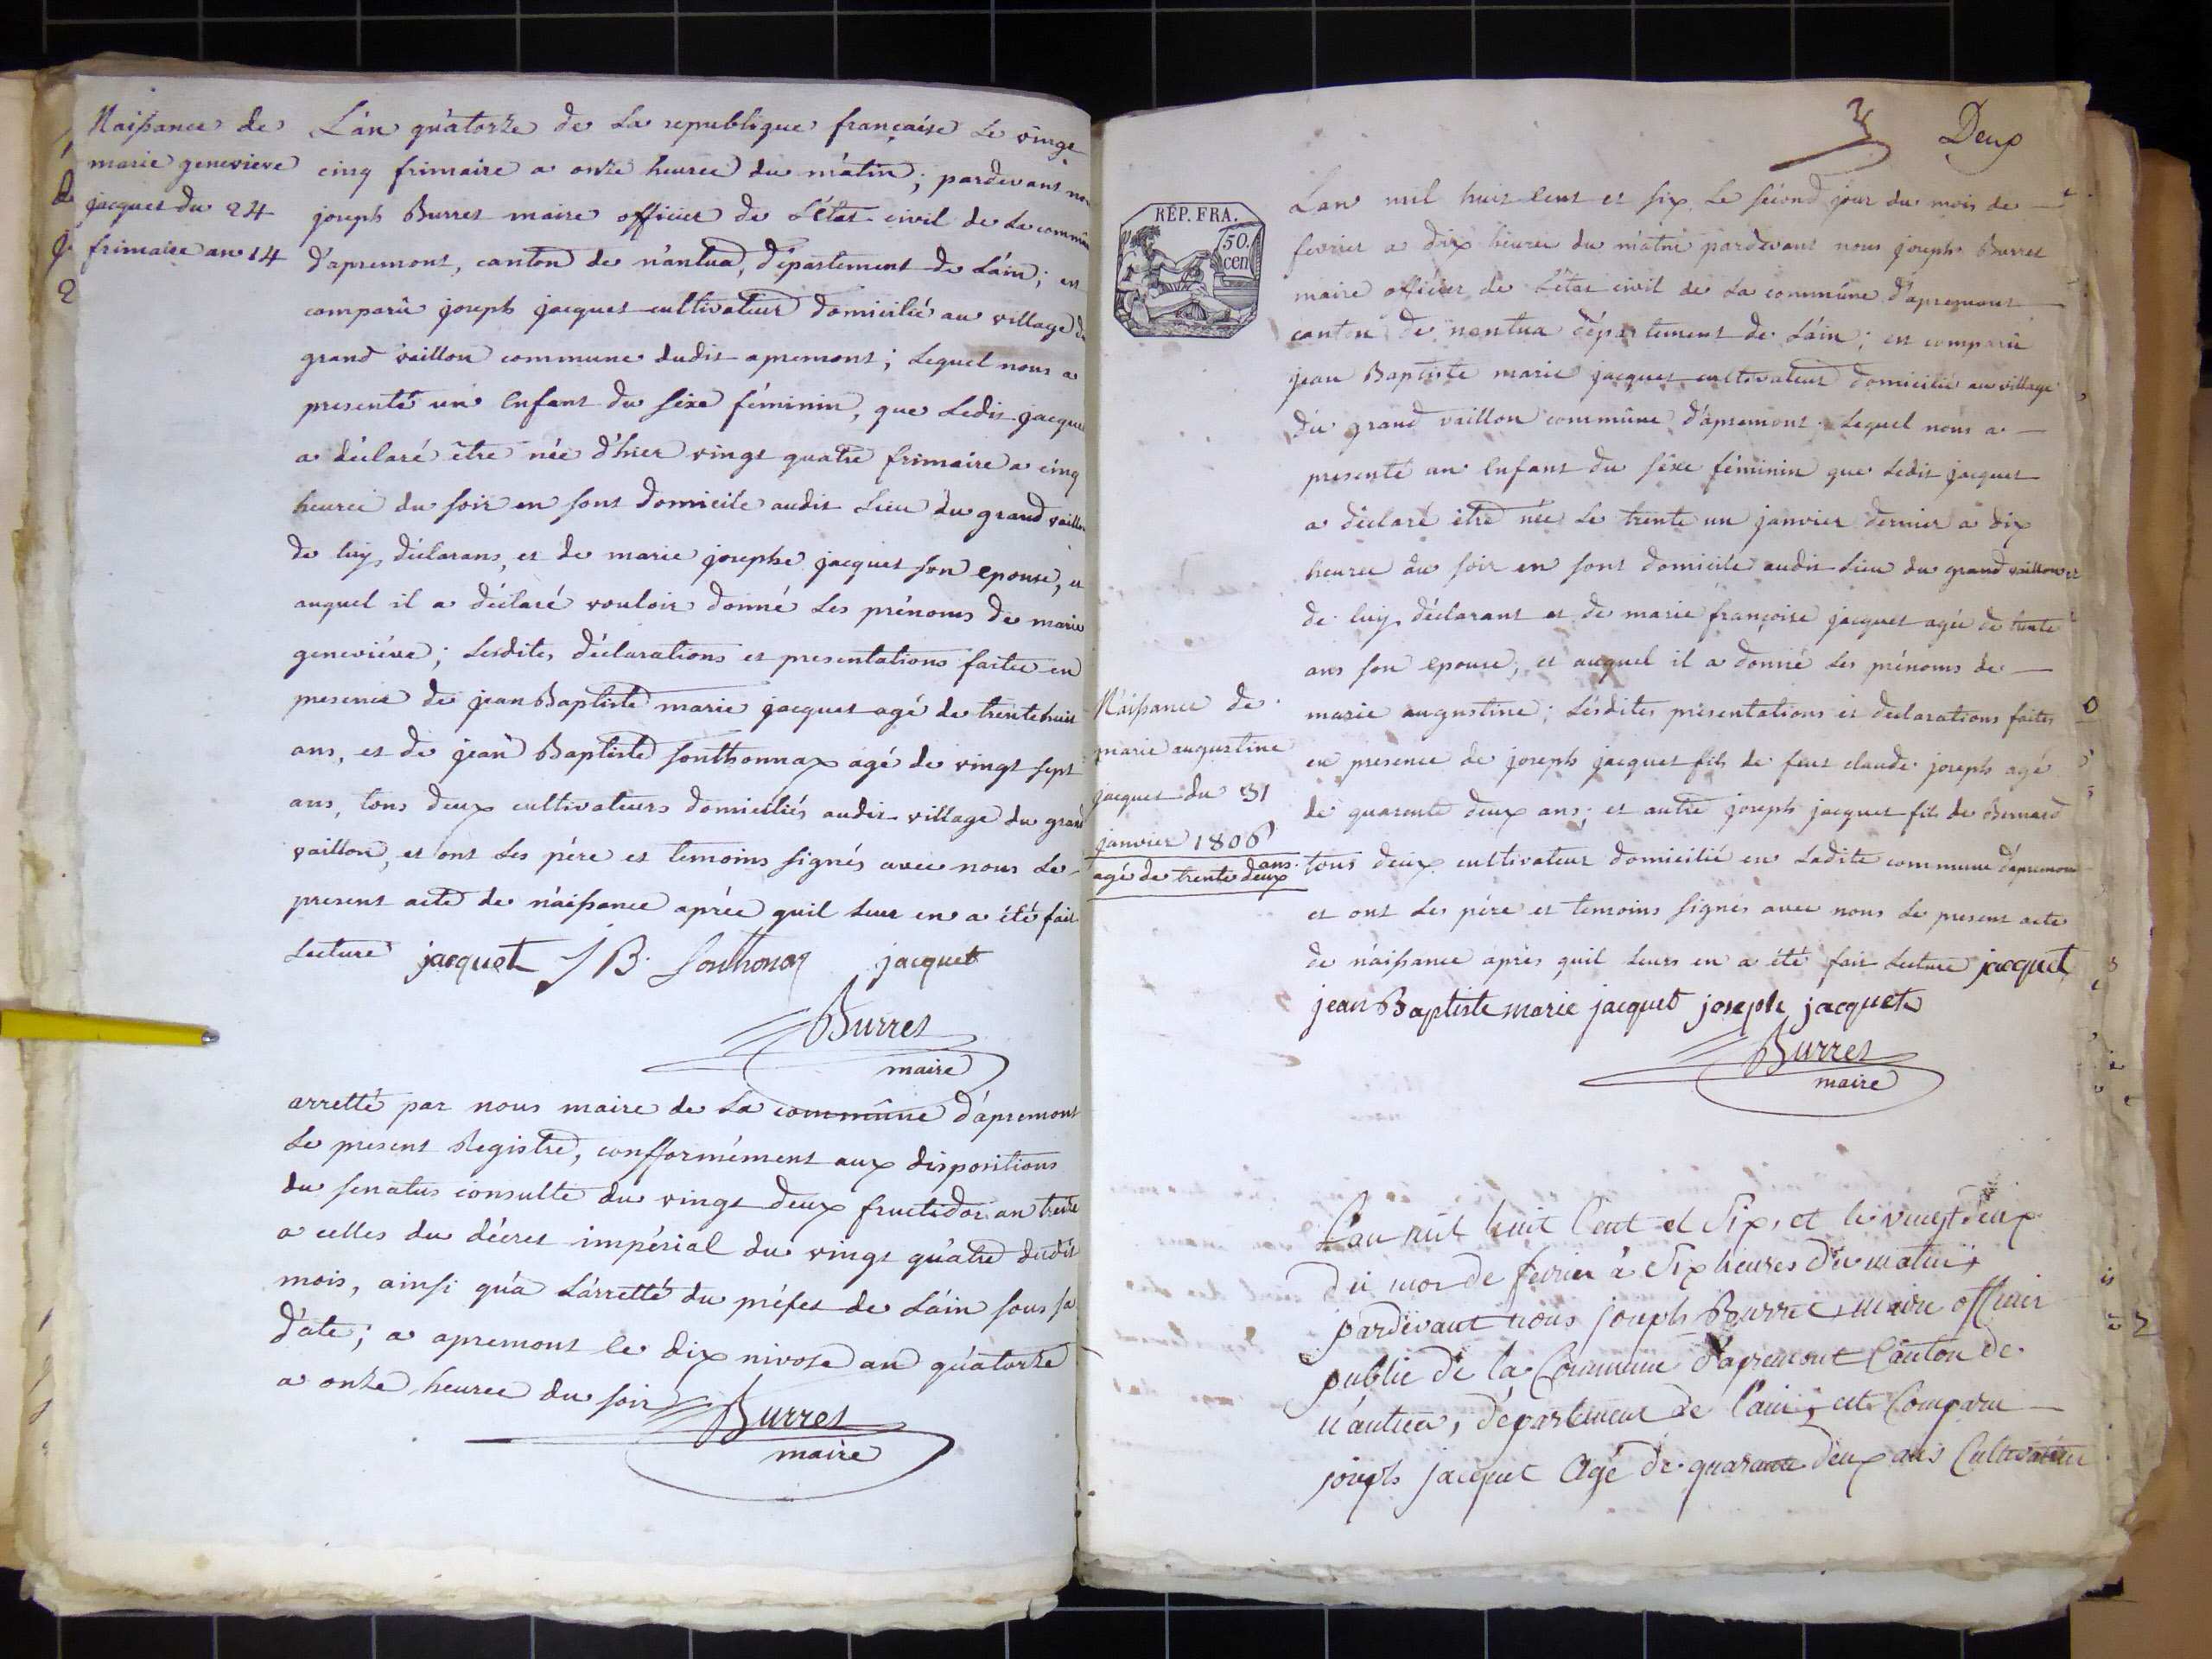 Naissance de
marie genevieve
jacquet du 24
frimaire an 14
L'an quatorze de La republique française Le vingt
cinq frimaire a onze heures du matin; pardevant nou
joseph Burret maire officier de L'état civil de La commun
d'apremont, canton de nantua, département de Láin; est
comparû joseph jacquet cultivateur domicilié au village du
grand vaillon commune dudit apremont; Lequel nous a
presenté un Enfant du sexe féminin, que Ledit jacque
a déclaré être née d'hier vingt quatre frimaire a cinq
heures du soir en sont domicile audit Lieu du grand vaillon
de luy, déclarans, et de marie josephe jacquet son epouse, et
auquel il a déclaré vouloir donné Les prénoms de marie
geneviéve; Lesdites déclarations et presentations faites en
presence de jean Baptiste marie jacquet agé de trente huit
ans, et de jean Baptiste Sonthonnax agé de vingt sept
ans, tous deux cultivateurs domiciliés audit village du grand
vaillon, et ont Les pére et temoins signés avec nous Le
present acte de náissance aprée quil Leur en a été fait
Lecture jacquet J B. Sonthonax jacquet
Burret
maire
arretté par nous maire de La commûne d'apremont
Le present Registre, confformément aux dispositions
du senatus consulte du vingt deux fructidor an treize
a celles du décret impérial du vingt quatre dudit
mois, ainsi qu'a L'arretté du préfet de Láin sous sa
date; a apremont le dix nivose an quatorze
a onze heures du soir Burret
maire
Deux
RÉP. FRA.
50.
cen
Lan mil huit cent et six Le sécond jour du mois de
fevrier a dix heures du matin pardevant nous joseph Burret
maire officier de L'état civil de La commûne d'apremont
canton de nantua département de Láin; est comparû
jean Baptiste marie jacquet cultivateur domicilié au village
du grand vaillon commûne d'apremont Lequel nous a
presenté un Enfant du séxe féminin que Ledit jacquet
a déclaré être née Le trente un janvier dernier a dix
heures du soir en sont domicile audit Lieu du grand vaillon et
de luy, déclarant et de marie françoise jacquet agée de trente
ans son epouse, et auquel il a donné Les prénoms de
marie augustine; Lésdites présentations et declarations faites
en presence de joseph jacquet fils de feus claude joseph agé
de quarente deux ans; et autre joseph jacquet fils de Bernard
Naissance de
marie augustine
jacquet du 31
janvier 1806
agé de trente deux ans.
tous deux cultivateur domicilié en Ladite commune d'apremont
et ont Les pére et temoins signés avec nous Le present acte
de náissance aprés quil Leurs en a été fait Lecture jacquet
jean Baptiste marie jacquet joseph jacquet
Burret
maire
L'an mil huit Cent et Six, et le vingt deux
du moi de fevrier à Six heures du matin,
pardevant nous joseph Burret maire officier
public de la Commune d'apremont Canton de
nantua, département de l'ain; est Comparu
joseph jacquet Agé de quarante deux ans Cultivateur